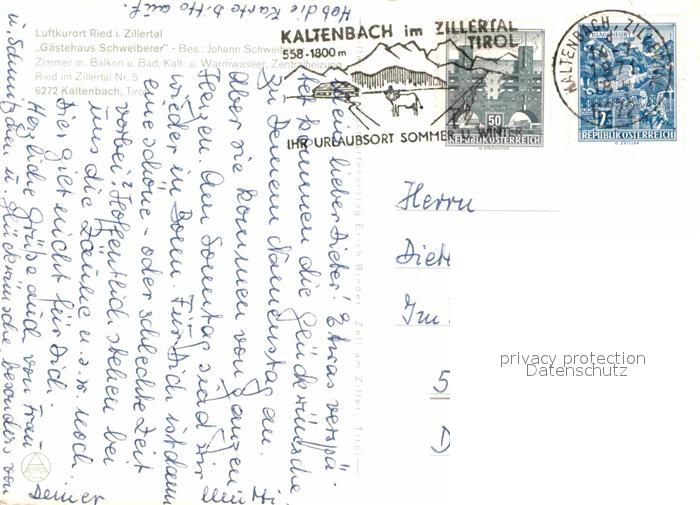 Luftkurort Ried i. Zillertal
„Gästehaus Schweiberer" - Bes.: Johann
Zimmer m. Balkon u. Bad, Kalt- u. Warmwasser, Zentralheizung
Ried im Zillertal Nr. 5
6272 Kaltenbach, Tirol
KALTENBACH im ZILLERTAL
TIROL
558-1800 m
IHR URLAUBSORT SOMMER U. WINTER
50
REPUBLIK ÖSTERREICH
KLAGENFURT
REPUBLIK ÖSTERREICH
KALTENBACH, ZILLERTAL
Erich Binder, Zell am Ziller, Tirol
Mein lieber Dieter! Etwas verspä-
tet kommen die Glückwünsche
zu Deinem Namenstag an.
Aber sie kommen von ganzem
Herzen. Am Sonntag sind wir
wieder in Bonn. Für Dich ist dann
eine schöne - oder schlechte Zeit
vorbei? Hoffentlich stehen bei
uns die Bäume u.s.w. noch.
Die gilt nicht für Dich.
Herzliche Grüße auch von Frau
u. Glückwünsche besonders von
Deiner Mutti.
Hab die Karte
Herrn
Diet
Im
5
D
privacy protection
Datenschutz